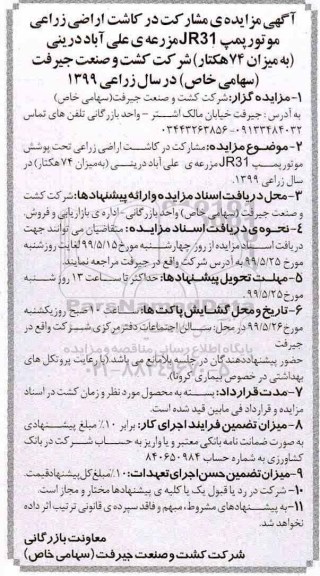 آگهی مزایده‌ی مشارکت در کاشت اراضی زراعی
موتور پمپ JR31 مزرعه‌ی علی آباد درینی
(به میزان ۷۴ هکتار) شرکت کشت و صنعت جیرفت
(سهامی خاص) در سال زراعی ۱۳۹۹
۱-مزایده گزار: شرکت کشت و صنعت جیرفت (سهامی خاص)
به آدرس: جیرفت خیابان مالک اشتر – واحد بازرگانی تلفن های تماس
۰۹۱۳۳۴۸۴۰۳۲-۰۳۴۴۳۲۶۳۸۵۶
۲-موضوع مزایده: مشارکت در کاشت اراضی زراعی تحت پوشش
موتور پمپ JR31 مزرعه‌ی علی آباد درینی (به میزان ۷۴ هکتار) در
سال زراعی ۱۳۹۹.
۳-محل دریافت اسناد مزایده و ارائه پیشنهادها: شرکت کشت
و صنعت جیرفت (سهامی خاص) واحد بازرگانی-اداره‌ی بازاریابی و فروش.
۴-نحوه‌ی دریافت اسناد مزایده: متقاضیان می توانند جهت
دریافت اسناد مزایده از روز چهارشنبه مورخ ۹۹/۵/۱۵ لغایت روز شنبه
مورخ ۹۹/۵/۲۵ به آدرس شرکت واقع در جیرفت مراجعه نمایند.
۵-مهلت تحویل پیشنهادها: حداکثر تا ساعت ۱۳ روز شنبه
مورخ ۹۹/۵/۲۵.
۶-تاریخ و محل گشایش پاکت ها: ساعت ۱۰ صبح روز یکشنبه
مورخ ۹۹/۵/۲۶ در محل: سالن اجتماعات دفتر مرکزی شرکت واقع در
جیرفت
حضور پیشنهاددهندگان در جلسه بلامانع می باشد (با رعایت پروتکل های
بهداشتی در خصوص بیماری کرونا).
۷-مدت قرارداد: بسته به محصول مورد نظر و زمان کشت در اسناد
مزایده و قرارداد فی مابین قید شده است.
۸-میزان تضمین فرایند اجرای کار: برابر ۱۰٪ مبلغ پیشنهادی
به صورت ضمانت نامه بانکی معتبر و یا واریز به حساب شرکت در بانک
کشاورزی به شماره حساب ۸۴۰۶۵۰۹۸۴
۹-میزان تضمین حسن اجرای تعهدات: ۱۰٪ مبلغ کل پیشنهاد قیمت.
۱۰- شرکت در رد یا قبول یک یا کلیه‌ی پیشنهادها مختار و مجاز است.
۱۱-به پیشنهادهای مشروط، مبهم و فاقد سپرده‌ی قانونی ترتیب اثر داده
نخواهد شد.
معاونت بازرگانی
شرکت کشت و صنعت جیرفت (سهامی خاص)